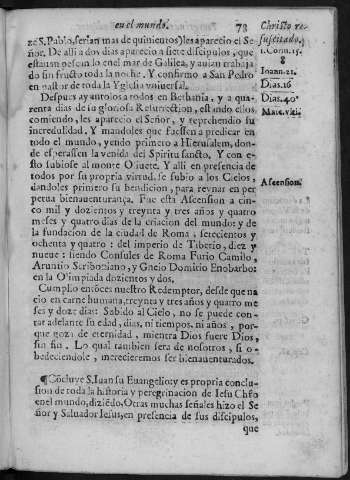 en el mundo. 78
zē S. Pablo, serian mas de quinientos) les aparecio el Se
ñor. De alli a dos dias aparecio a siete discipulos, que
estauan pescando en el mar de Galilea, y auian trabaja
do sin fruto toda la noche. Y confirmo a San Pedro
en pastor de toda la Yglesia vniuersal.
Despues ay auiolos a todos en Bethania, y a qua-
renta dias de su gloriosa Resurrection, estando ellos
comiendo, les aparecio el Señor, y reprehendio su
incredulidad. Y mandoles que fuessen a predicar en
todo el mundo, yendo primero a Hierusalem, don-
de esperassen la venida del Spiritu sancto, Y con e-
sto subiose al monte Oliuete. Y alli en presencia de
todos por su propria virtud, se subio a los Cielos:
dandoles primero su bendicion, para reynar en per
petua bienauenturança. Fue esta Ascension a cin-
co mil y dozientos y treynta y tres años y quatro
meses y quatro dias de la criacion del mundo: y de
la fundacion de la ciudad de Roma, setecientos y
ochenta y quatro: del imperio de Tiberio, diez y
nueue: siendo Consules de Roma Furio Camilo,
Aruntio Scriboniano, y Gneio Domitio Enobarbo:
en la Olimpiada dozientos y dos.
Cumplio entōces nuestro Redemptor, desde que na
cio en carne humana, treynta y tres años y quatro me
ses y doze dias: Subido al Cielo, no se puede con-
tar adelante su edad, dias, ni tiempos, ni años, por-
que goza de eternidad, mientra Dios fuere Dios,
sin fin. Lo qual tambien sera de nosotros, si o-
bedeciendole, merecieremos ser bienauenturados.
¶ Cōcluye S. Iuan su Euangelio: y es propria conclu-
sion de toda la historia y peregrinacion de Iesu Chro
en el mundo, diziēdo, Otras muchas señales hizo el Se
ñor y Saluador Iesus, en presencia de sus discipulos,
que
Christo re-
suscitado.
1. Corin. 15.
8
Ioann. 21.
Dias. 16
Dias. 40
Marc. vlti.
Ascension.